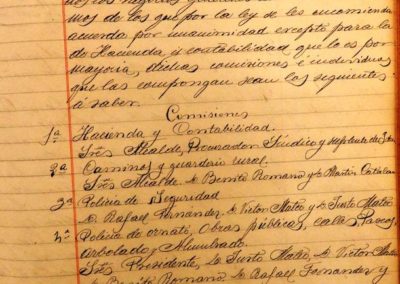 mos de los que por la ley de les encomienda
acuerda por unanimidad excepto para la
de Hacienda y contabilidad que lo es por
mayoria, dichas comisiones é individuos
que las compongan sean las siguientes
á saber.
Comisiones
1ª Hacienda y Contabilidad.
Sres Alcalde, Procurador Síndico y suplente de
2ª Caminos y guarderia rural.
Sres Alcalde D. Benito Romano y D. Martin
3ª Policia de Seguridad
D. Rafael Fernandez, D. Victor Mateo y D. Justo Mateo
4ª Policia de ornato, Obras públicas, calles, Paseos,
Arbolado, Alumbrado.
Sres Presidente, D. Justo Mateo, D. Victor Mateo
D. Benito Romano, D. Rafael Fernandez y